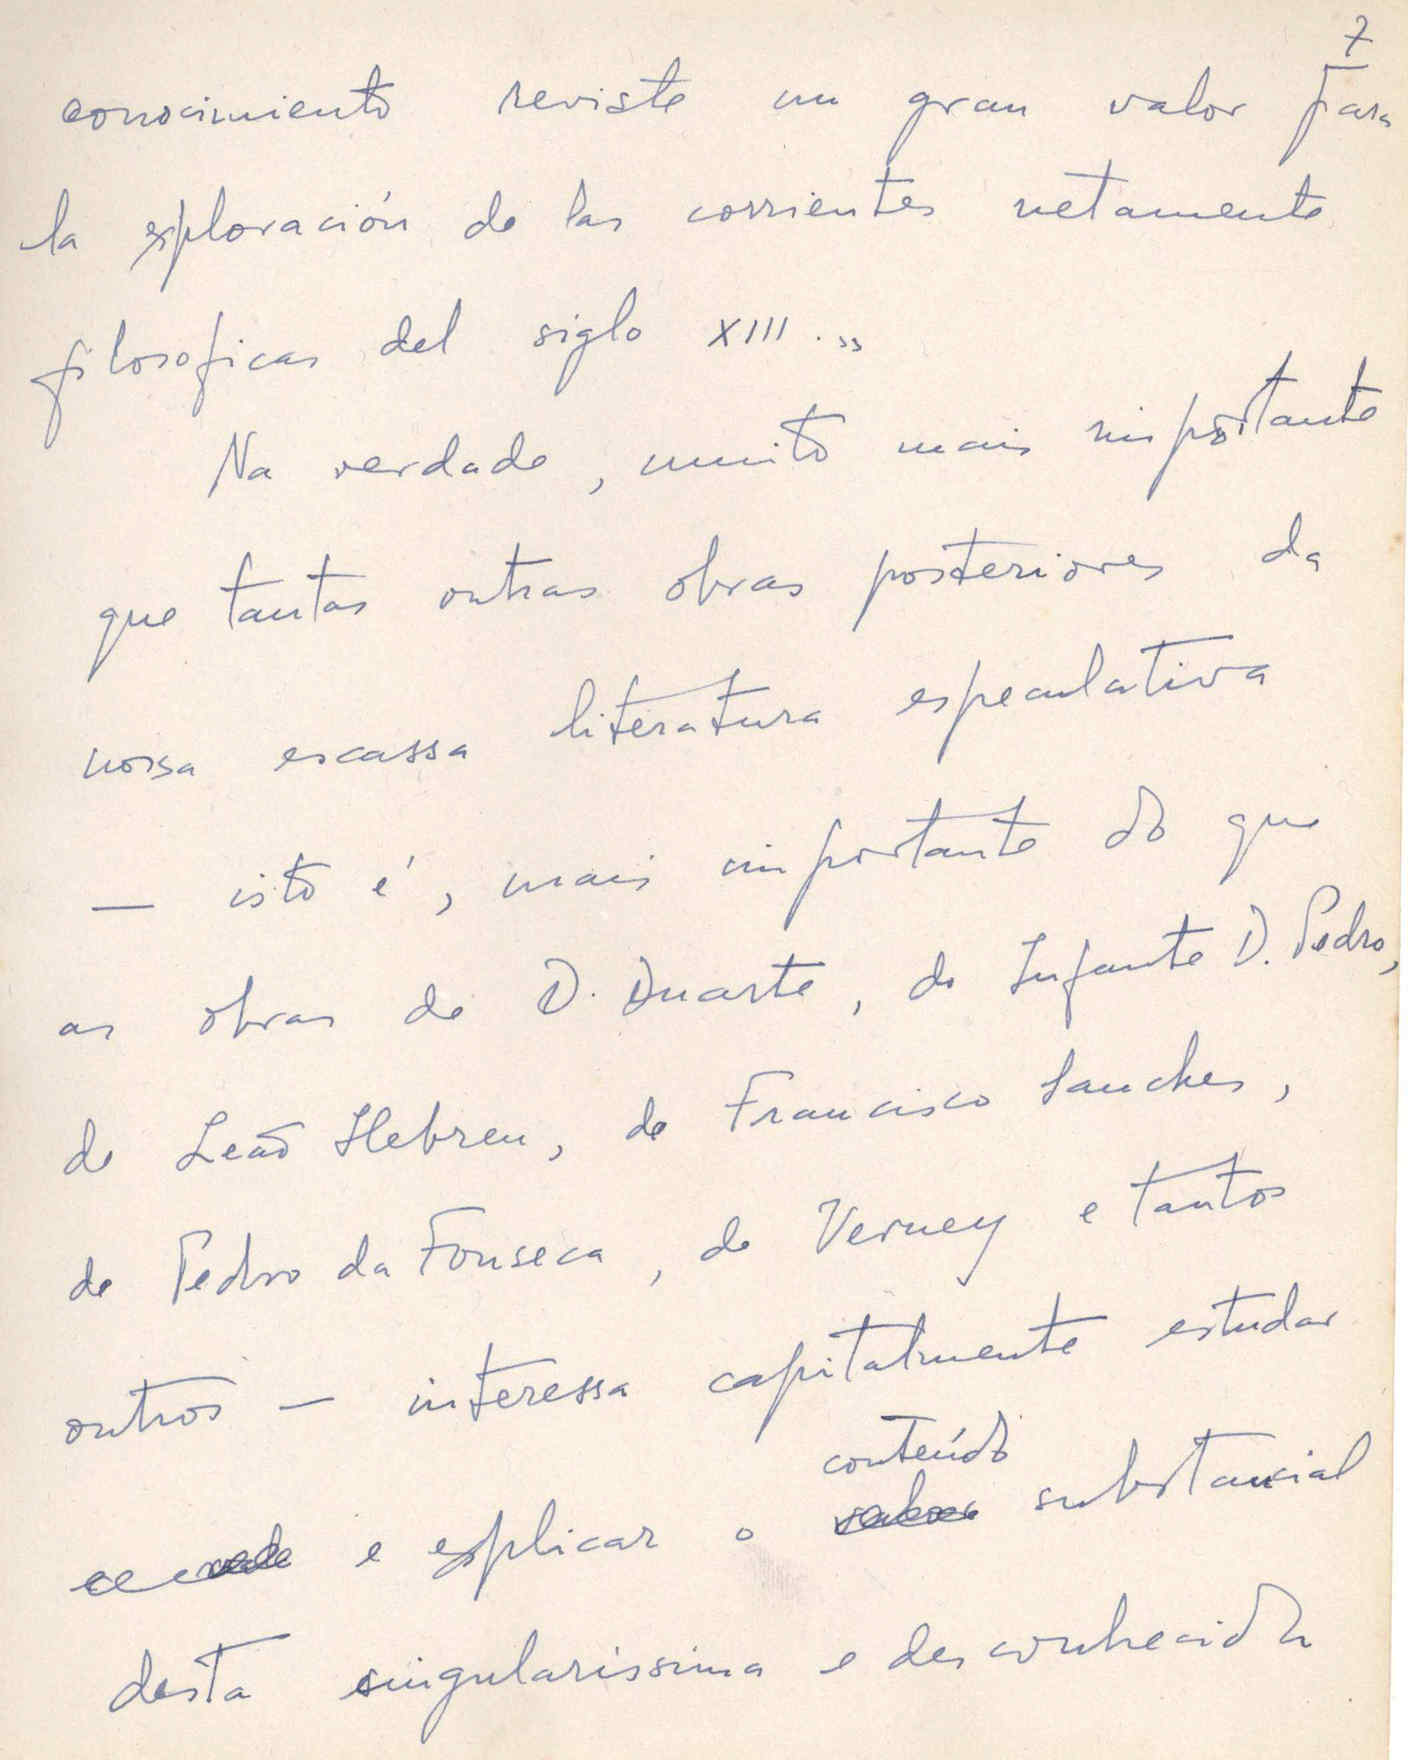 7
conocimiento reviste un gran valor para
la exploración de las corrientes netamente
filosoficas del siglo XIII."
Na verdade, muito mais importante
que tantas outras obras posteriores da
nossa escassa literatura especulativa
— isto é, mais importante do que
as obras de D. Duarte, do Infante D. Pedro,
de Leão Hebreu, de Francisco Sanches,
de Pedro da Fonseca, de Verney e tantos
outros — interessa capitalmente estudar
conteúdo
e explicar o substancial
desta singularissima e desconhecida